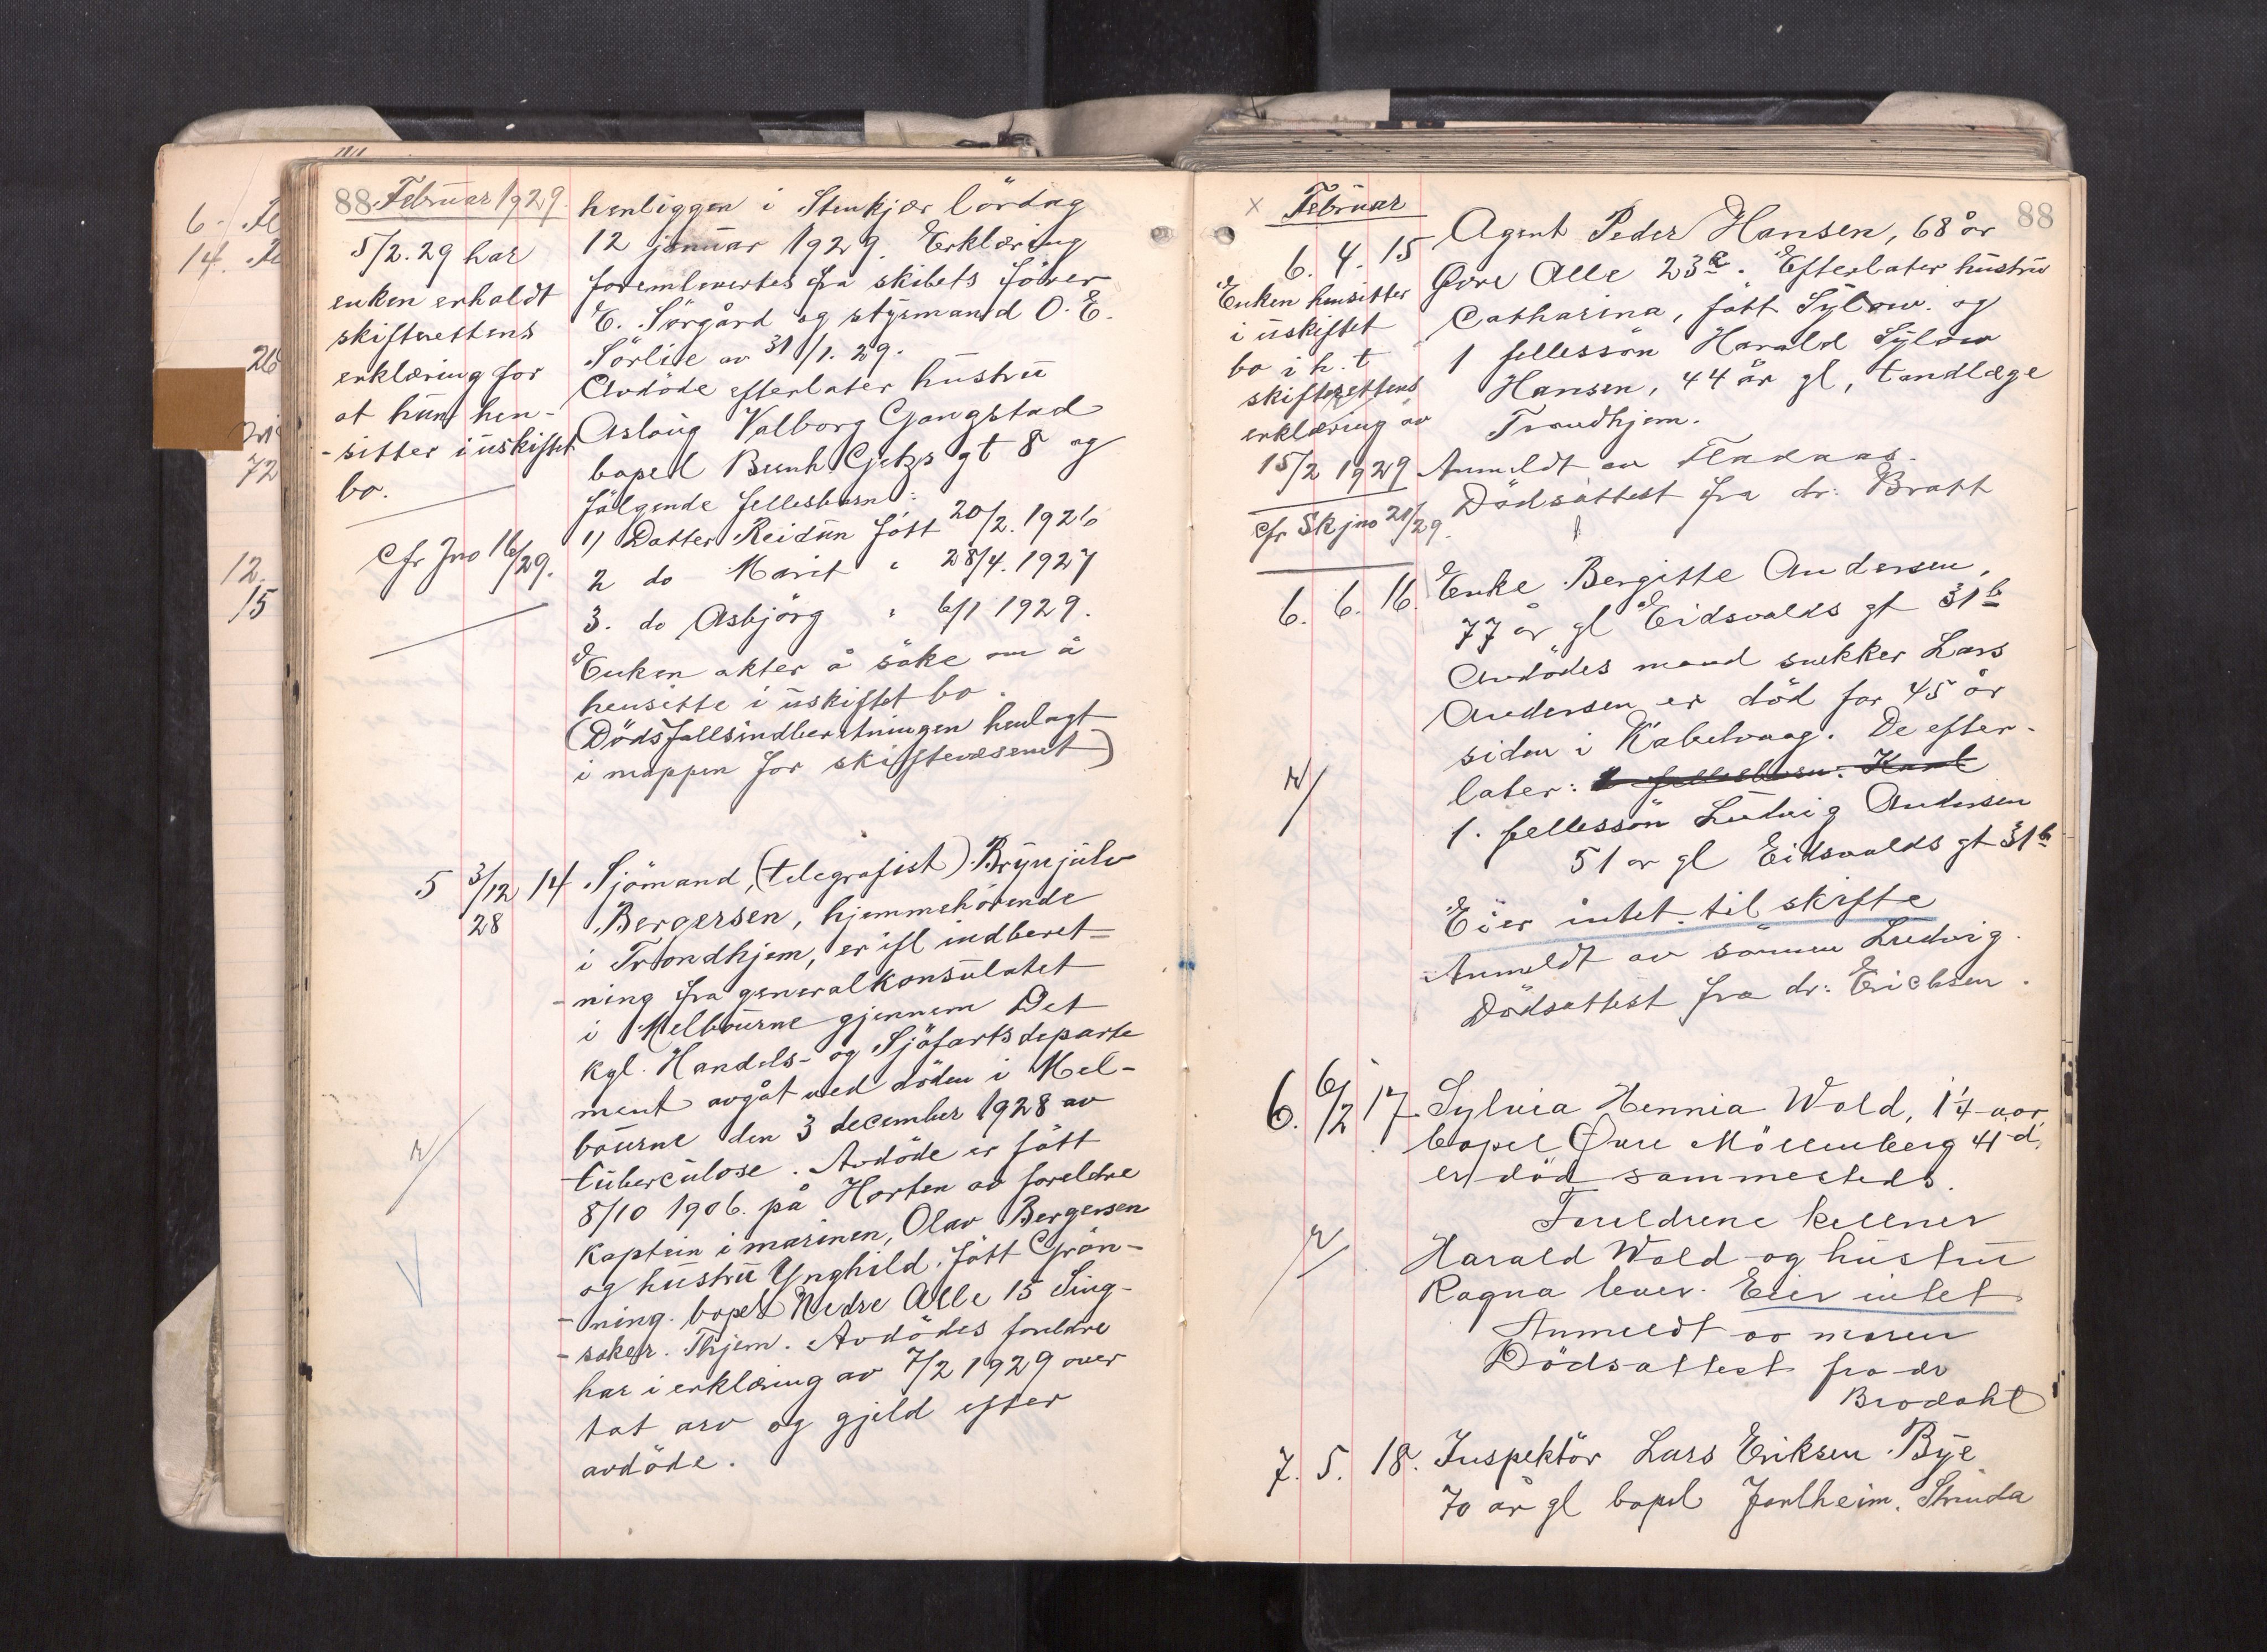 88 Februar 1929.
5/2. 29 har
enken erholdt
skifterettens
erklæring for
at hun hen-
-sitter i uskiftet
bo.
Cfr Jno 16/29.
henliggen i Stenkjær lördag
12 januar 1929. Erklæring
foremlevertes fra skibets förer
E. Sörgård og styrmand O. E.
Sörlie av 31/1. 29.
Avdöde efterlater hustru
Aslaug Valborg Gangstad
bopel Bernh. Getzs gt 8 og
fölgende fellesbarn:
1) Datter Reidun fött 20/2. 1926
2 do Marit " 28/4. 1927
3. do Asbjörg " 6/1 1929.
Enken akter å söke om å
hensitte i uskiftet bo.
(Dödsfallsindberetningen henlagt
i mappen for skiftevesenet)
5 3/12 28 14 Sjömand, (telegrafist) Brynjulv
Bergersen, hjemmehörende
i Trondhjem, er ifl indberet-
-ning fra generalkonsulatet
i Melbourne gjennem Det
kgl. Handels- og Sjöfartsdeparte
ment avgåt ved döden i Mel-
bourne den 3 december 1928 av
tuberculose. Avdöde er fött
8/10 1906. på Horten av foreldre
Kaptein i marinen, Olav Bergersen
og hustru Ynghild, fött Grön-
-ning. bopel Nedre Alle 15 Sing-
-saker. Thjem. Avdödes foreldre
har i erklæring av 7/2 1929 over
tat arv og gjeld efter
avdöde.
x Februar 88
6. 4. 15 Agent Peder Hansen, 68 år
Övre Alle 23a. Efterlater hustru
Catharina, fött Sylow. og
1 fellessön Harald Sylow
Hansen, 44 år gl, tandlæge
Trondhjem.
Anmeldt av Flakaas.
Dödsattest fra dr: Bratt
Enken hensitter
i uskiftet
bo i h. t
skifterettens
erklæring av
15/2 1929
Cfr Skjno 21/29.
6. 6. 16. Enke Bergitte Andersen,
77 år gl Eidsvolds gt 31b
Avdödes mand snekker Lars
Andersen er död for 45 år
siden i Kabelvaag. De efter-
later: 1 fellesbarn: Karl
1. fellessön Ludvig Andersen
51 år gl Eidsvolds gt 31b
Eier intet til skifte
Anmeldt av sönnen Ludvig.
Dödsattest fra dr: Erichsen.
6. 6/2 17. Sylvia Hennia Wold, 1 1/4 aar,
bopel Övre Möllenberg 41 d.
er död sammesteds.
Foreldrene kellner
Harald Wold og hustru
Ragna lever. Eier intet
Anmeldt av moren
Dödsattest fra dr
Brodahl
7. 5. 18. Inspektör Lars Eriksen Bye
70 år gl bopel Jarlheim, Strinda